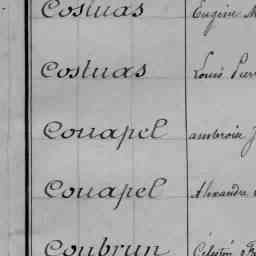 Costuas Eugène
Costuas Louis
Couapel ambroise
Couapel Alexandre
Coubrun Célestin